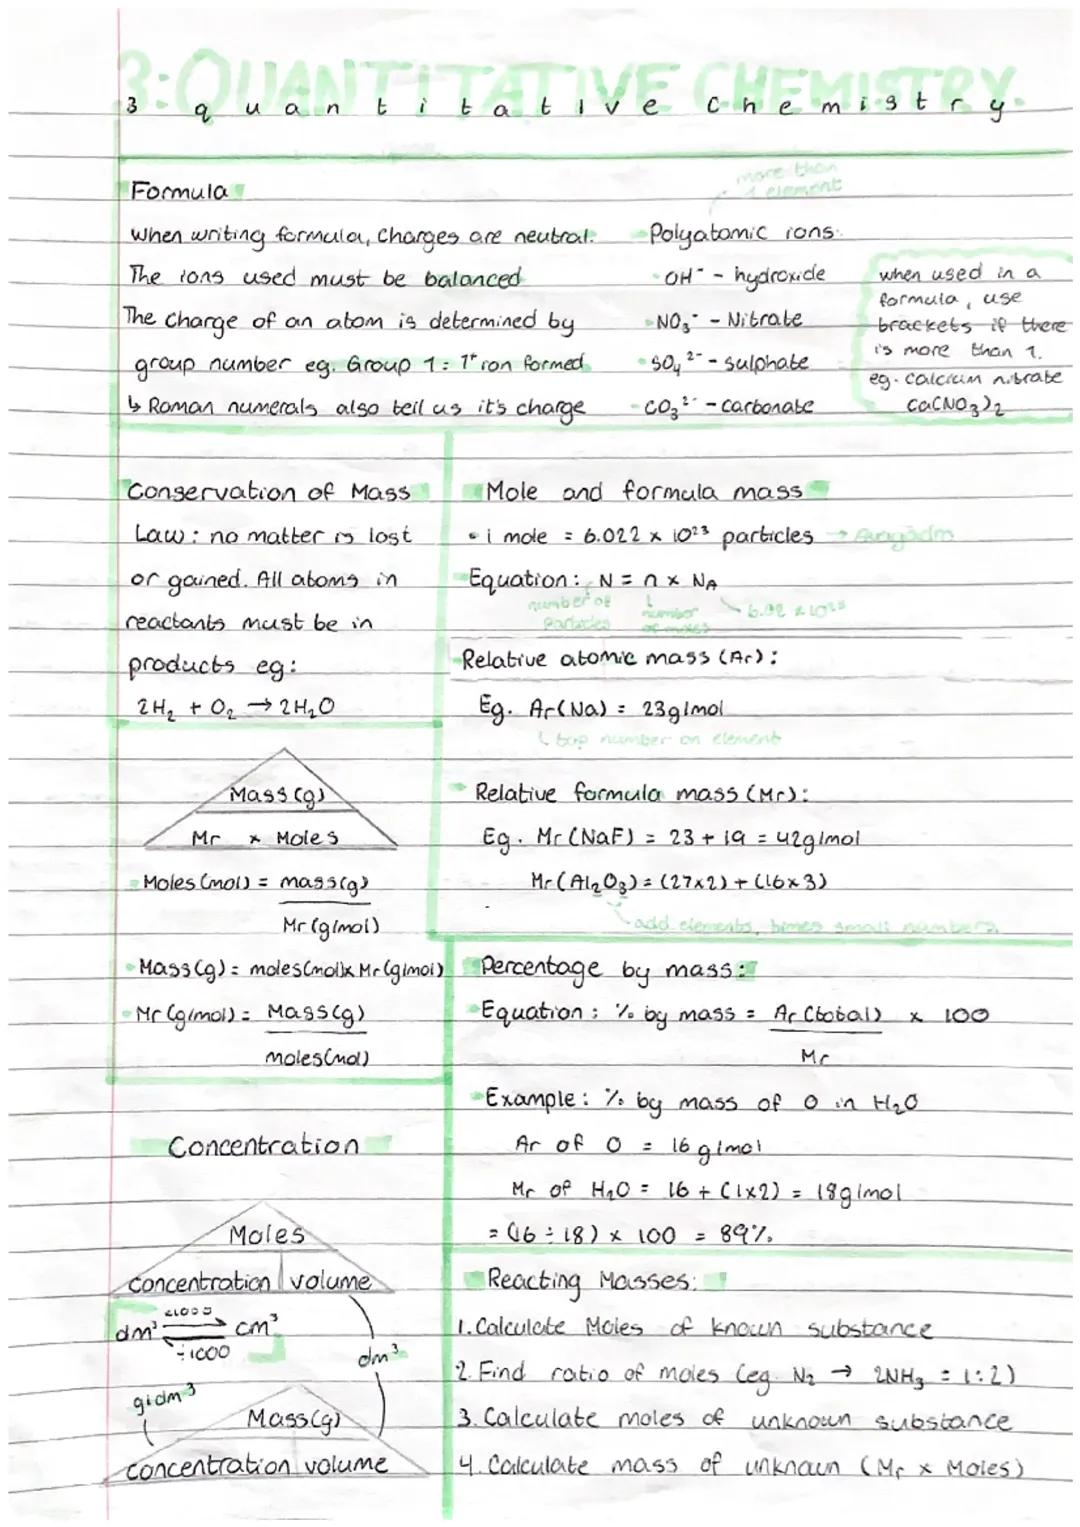 3: QUANTITATIVE CHEMISTRY.
3 quantitative chemistry.
Formula
When writing formula, Charges are neutral.
The ions used must be balanced
The Charge of an atom is determined by
group number eg. Group 1 = 1⁺ ion formed
↳ Roman numerals also tell us it's charge
more than
1 element
Polyatomic ions:
• OH⁻ - hydroxide
• NO₃⁻ - Nitrate
• SO₄²⁻ - sulphate
- CO₃²⁻ - carbonate
when used in a
formula, use
brackets if there
is more than 1.
eg. calcium nitrate
Ca(NO₃)₂
Conservation of Mass
Law: no matter is lost
or gained. All atoms in
reactants must be in
products eg:
2H₂ + O₂ → 2H₂O
Mass (g)
Mr × Moles
Moles (mol) = mass(g)
Mr (g/mol)
• Mass (g) = moles(mol) × Mr (g/mol)
• Mr (g/mol) = Mass(g)
moles(mol)
Mole and formula mass
• 1 mole = 6.022 × 10²³ particles →
Equation: N = n × NA
number of
particles
number
of moles
6.02 × 10²³
Relative atomic mass (Ar):
Eg. Ar(Na) = 23g/mol
↳ top number on element
Relative formula mass (Mr):
Eg. Mr (NaF) = 23 + 19 = 42g/mol
Mr (Al₂O₃) = (27×2) + (16×3)
add elements, times small numbers
Percentage by mass:
Equation: % by mass = Ar (total) × 100
Mr
Example: % by mass of O in H₂O
Ar of O = 16 g/mol
Mr of H₂O = 16 + (1×2) = 18g/mol
= (16 ÷ 18) × 100 = 89%
Concentration
Moles
concentration volume
×1000
dm³ cm³
÷1000
dm³
g/dm³
Mass(g)
concentration volume
Reacting Masses:
1. Calculate Moles of known substance
2. Find ratio of moles (eg. N₂ → 2NH₃ = 1:2)
3. Calculate moles of unknown substance
4. Calculate mass of unknown (Mr × Moles)